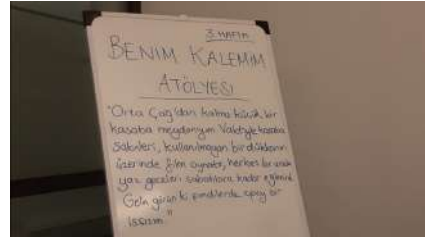 3. HAFTA
BENİM KALEMİM
ATÖLYESİ
"Orta Çağ'dan kalma küçük bir
kasaba meydanıyım. Vaktiyle kasaba
sakinleri, kullanılmayan bir dükkanın
üzerinde film oynatır, herkes bir arada
yaz geceleri sabahlara kadar eğlenirdi.
Gelin görün ki şimdilerde epey bir
ıssızım."